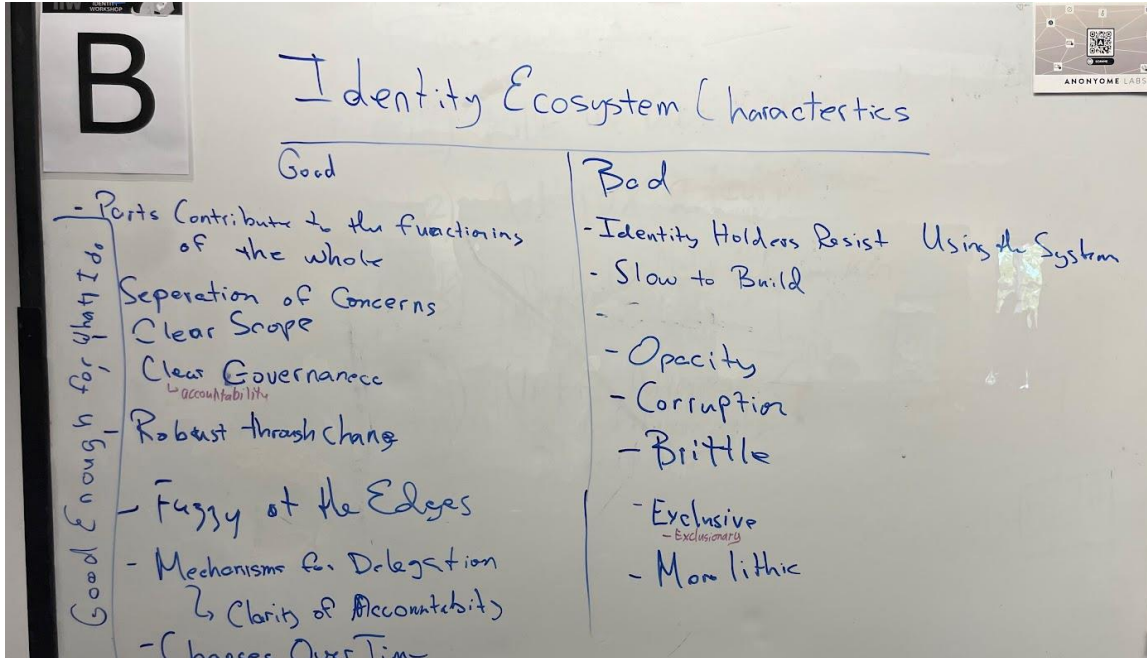 IDENTITY
WORKSHOP
B
ANONYOME LABS
Identity Ecosystem Charactertics
Good
- Parts Contribute to the functioning
of the whole
Seperation of Concerns
Clear Scope
Clear Governanece
↳ accountability
Robust through change
- Fuzzy at the Edges
- Mechanisms for Delegation
↳ Clarity of Accountability
- Changes Over Time
Good Enough for what I do
Bad
- Identity Holders Resist Using the System
- Slow to Build
-
- Opacity
- Corruption
- Brittle
- Exclusive
- Exclusionary
- Monolithic